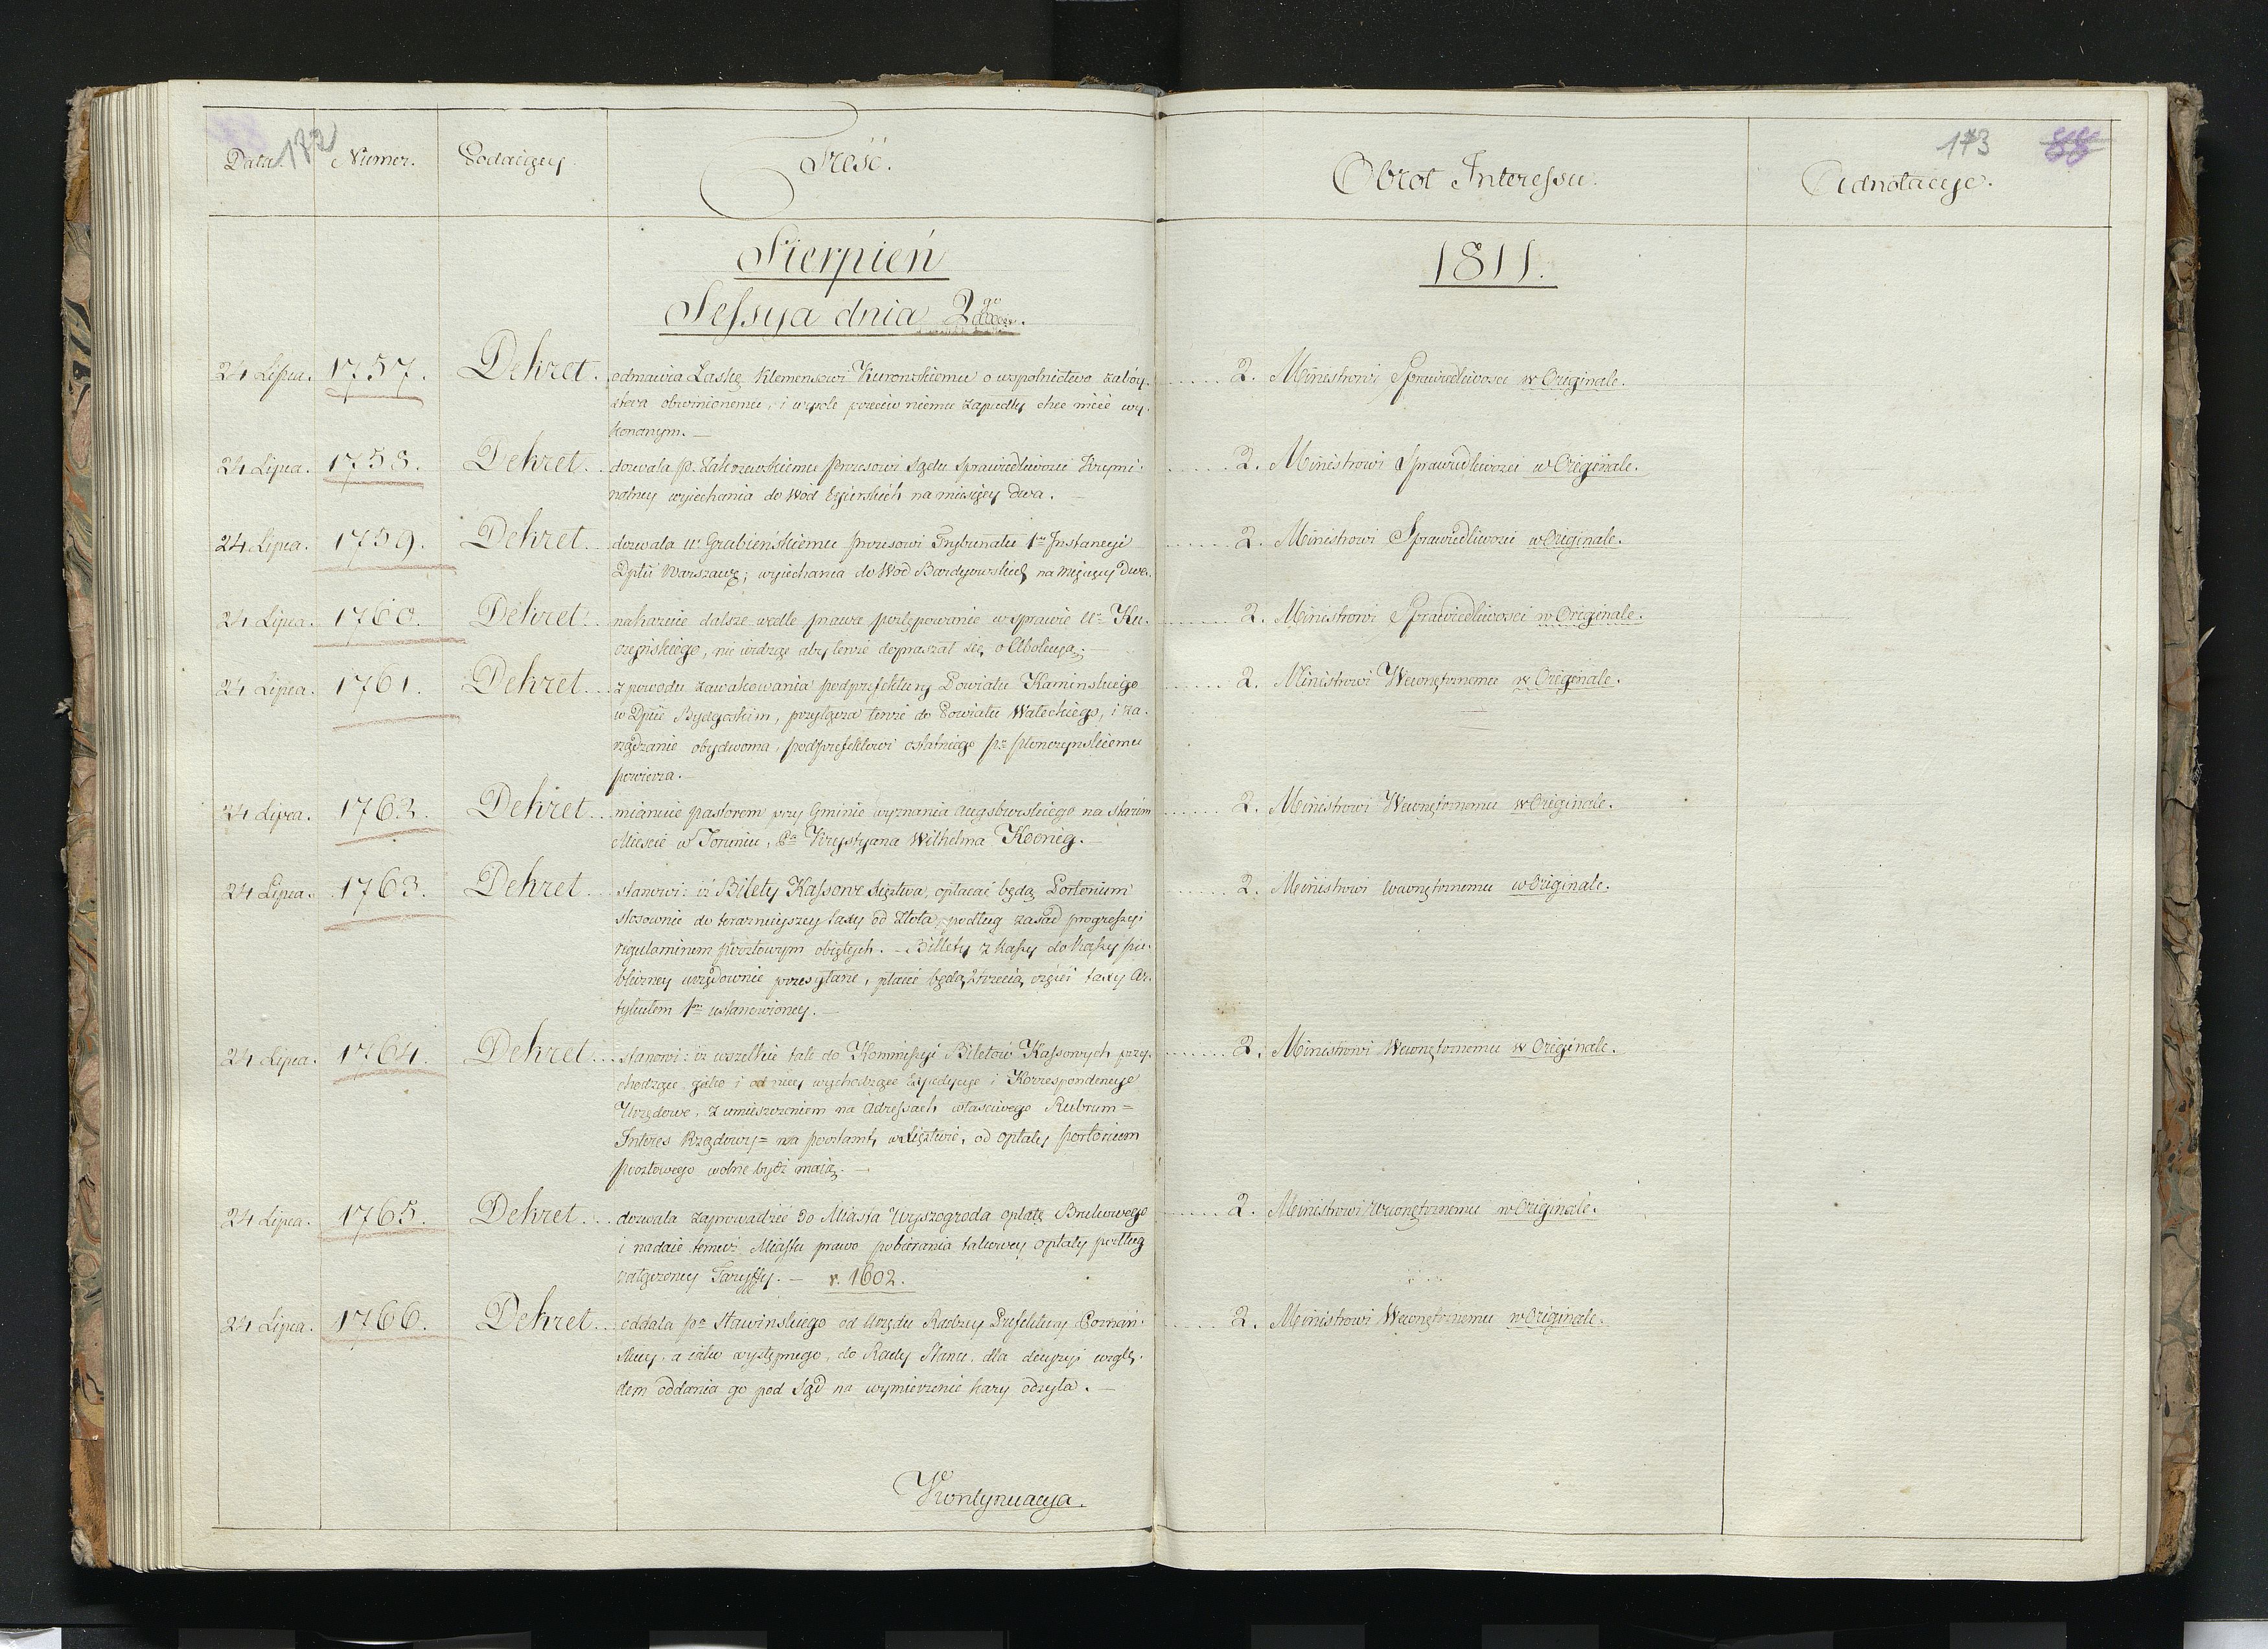 172
Data. Numer. Podaiący Treść.
Sierpień
Sessya dnia 2go
24 Lipca. 1757. Dekret. odmawia Łaskę Klemensowi Kurowskiemu o wspolnictwo zabóy-
stwa obwinionemu, i wyrok przeciw niemu zapadły chce mieć wy-
konanym. —
24 Lipca. 1758. Dekret. dozwala p. Zakrzewskiemu Prezesowi Sądu Sprawiedliwości Krymi-
nalney wyiechania do Wód Egierskich na miesięcy dwa. —
24 Lipca. 1759. Dekret. dozwala Ur Grabieńskiemu Prezesowi Trybunału 1éy Instancyi
Dptu Warszawg; wyiechania do Wod Bardyowskich na Mięsięcy Dwa.
24 Lipca. 1760. Dekret. nakazuie dalsze wedle prawa postępowanie w sprawie Ur Ku-
czyńskiego, nie widząc aby tenże dopraszał się o Abolucyą. —
24 Lipca. 1761. Dekret. z powodu zawakowania podprefektury Powiatu Kaminskiego
w Dptcie Bydgoskim, przyłącza tenże do Powiatu Wałeckiego, i za-
rządzanie obydwoma, podprefektowi ostatniego Pr Płonczynskiemu
powierza. —
24 Lipca. 1762. Dekret. mianuie pastorem przy Gminie wyznania Augsburskiego na starem
Mieście w Toruniu, Pa Krystyana Wilhelma Koenig. —
24 Lipca. 1763. Dekret. stanowi: iż Bilety Kassowe Xięztwa, opłacać będą Portorium
stosownie do teraznieyszey taxy od złota, podług zasad progressyi
regulaminem pocztowym obiętych. — Billety z Kassy do Kassy pu-
bliczney urzędownie przesyłane, płacić będą trzecią część taxy Ar-
tykułem 1m ustanowioney. —
24 Lipca. 1764. Dekret. stanowi: iż wszelkie tak do Kommissyi Biletów Kassowych przy-
chodzące jako i od niey wychodzące Expedycye i Korrespondencye
Urzędowe, z umieszczeniem na Adressach właściwego Rubrum =
Interes Rządowy = na pocztamt, w Xięztwie, od opłaty portorium
pocztowego wolne bydź maią. —
24 Lipca. 1765. Dekret. dozwala zaprowadzić do Miasta Wyszogroda opłatę Brukowego
i nadaie temuż Miastu prawo pobierania takowey opłaty podług
załączoney Taryffy. — v. 1602.
24 Lipca. 1766. Dekret. oddala pa Sławinskiego od Urzędu Radzcy Prefektury Poznań-
skiey, a iako występnego, do Rady Stanu, dla decyzyi wzglę-
dem oddania go pod Sąd na wymierzenie kary odsyła. —
Kontynuacya.
173 88
Obrot Interessu. Adnotacye.
1811.
2. Ministrowi Sprawiedliwosci w Originale.
2. Ministrowi Sprawiedliwości w Originale.
2. Ministrowi Sprawiedliwości w Originale.
2. Ministrowi Sprawiedliwosci w Originale.
2. Ministrowi Wewnętrznemu w Originale.
2. Ministrowi Wewnętrznemu w Originale.
2. Ministrowi Wewnętrznemu w Originale.
2. Ministrowi Wewnętrznemu w Originale.
2. Ministrowi Wewnętrznemu w Originale.
2. Ministrowi Wewnętrznemu w Originale.